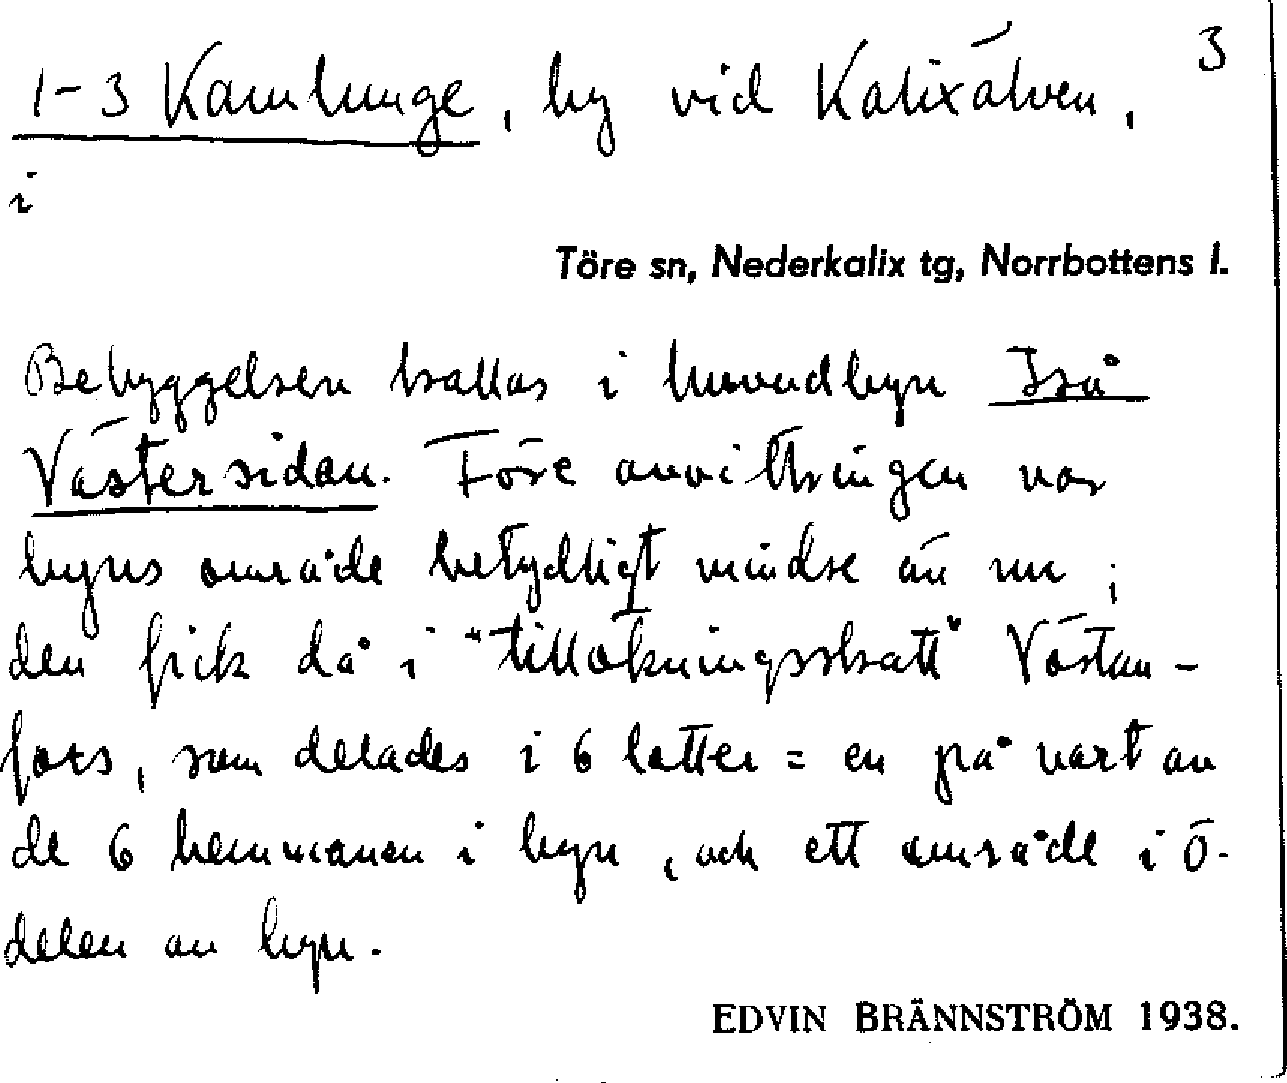 1-3 Kamlunge, by vid Kalixälven, 3
i
Töre sn, Nederkalix tg, Norrbottens l.
Bebyggelsen kallas i huvudbyn
Västersidan. Före avvittringen var
byns område betydligt mindre än nu ;
den fick då i "tillökningsskatt" Västan-
fors, som delades i 6 lotter = en på vart av
de 6 hemmanen i byn, och ett område i ö.
delen av byn.
EDVIN BRÄNNSTRÖM 1938.